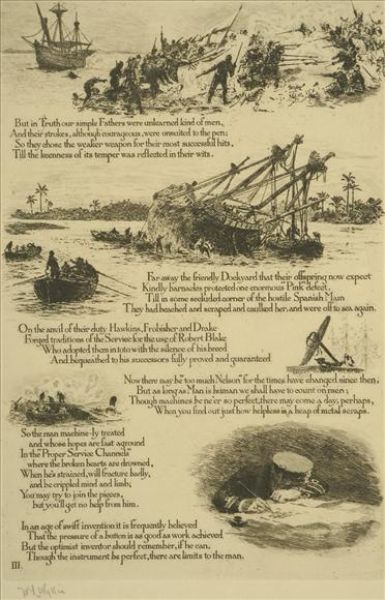 But in Truth our simple Fathers were unlearned kind of men,
And their strokes, although courageous, were unsuited to the pen;
So they chose the weaker weapon for their most successful hits,
Till the keenness of its temper was reflected in their wits.
Far away the friendly Dockyard that their offspring now expect
Kindly barnacles protected one enormous "Pink" defect,
Till in some secluded corner of the hostile Spanish Main
They had beached and scraped and caulked her, and were off to sea again.
On the anvil of their duty Hawkins, Frobisher and Drake
Forged traditions of the Service for the use of Robert Blake
Who adopted them in toto with the silence of his breed
And bequeathed to his successors fully proved and guaranteed
Now there may be "too much Nelson" for the times have changed since then,
But as long as Man is human we shall have to count on men;
Though machines be ne'er so perfect, there may come a day, perhaps,
When you find out just how helpless is a heap of metal scraps.
So the man machine-ly treated
and whose hopes are fast aground
In the "Proper Service Channels"
where the broken hearts are drowned,
When he's strained, will fracture badly,
and be crippled mind and limb;
You may try to join the pieces,
but you'll get no help from him.
In an age of swift invention it is frequently believed
That the pressure of a button is as good as work achieved
But the optimist inventor should remember, if he can,
Though the instrument be perfect, there are limits to the man.
III.